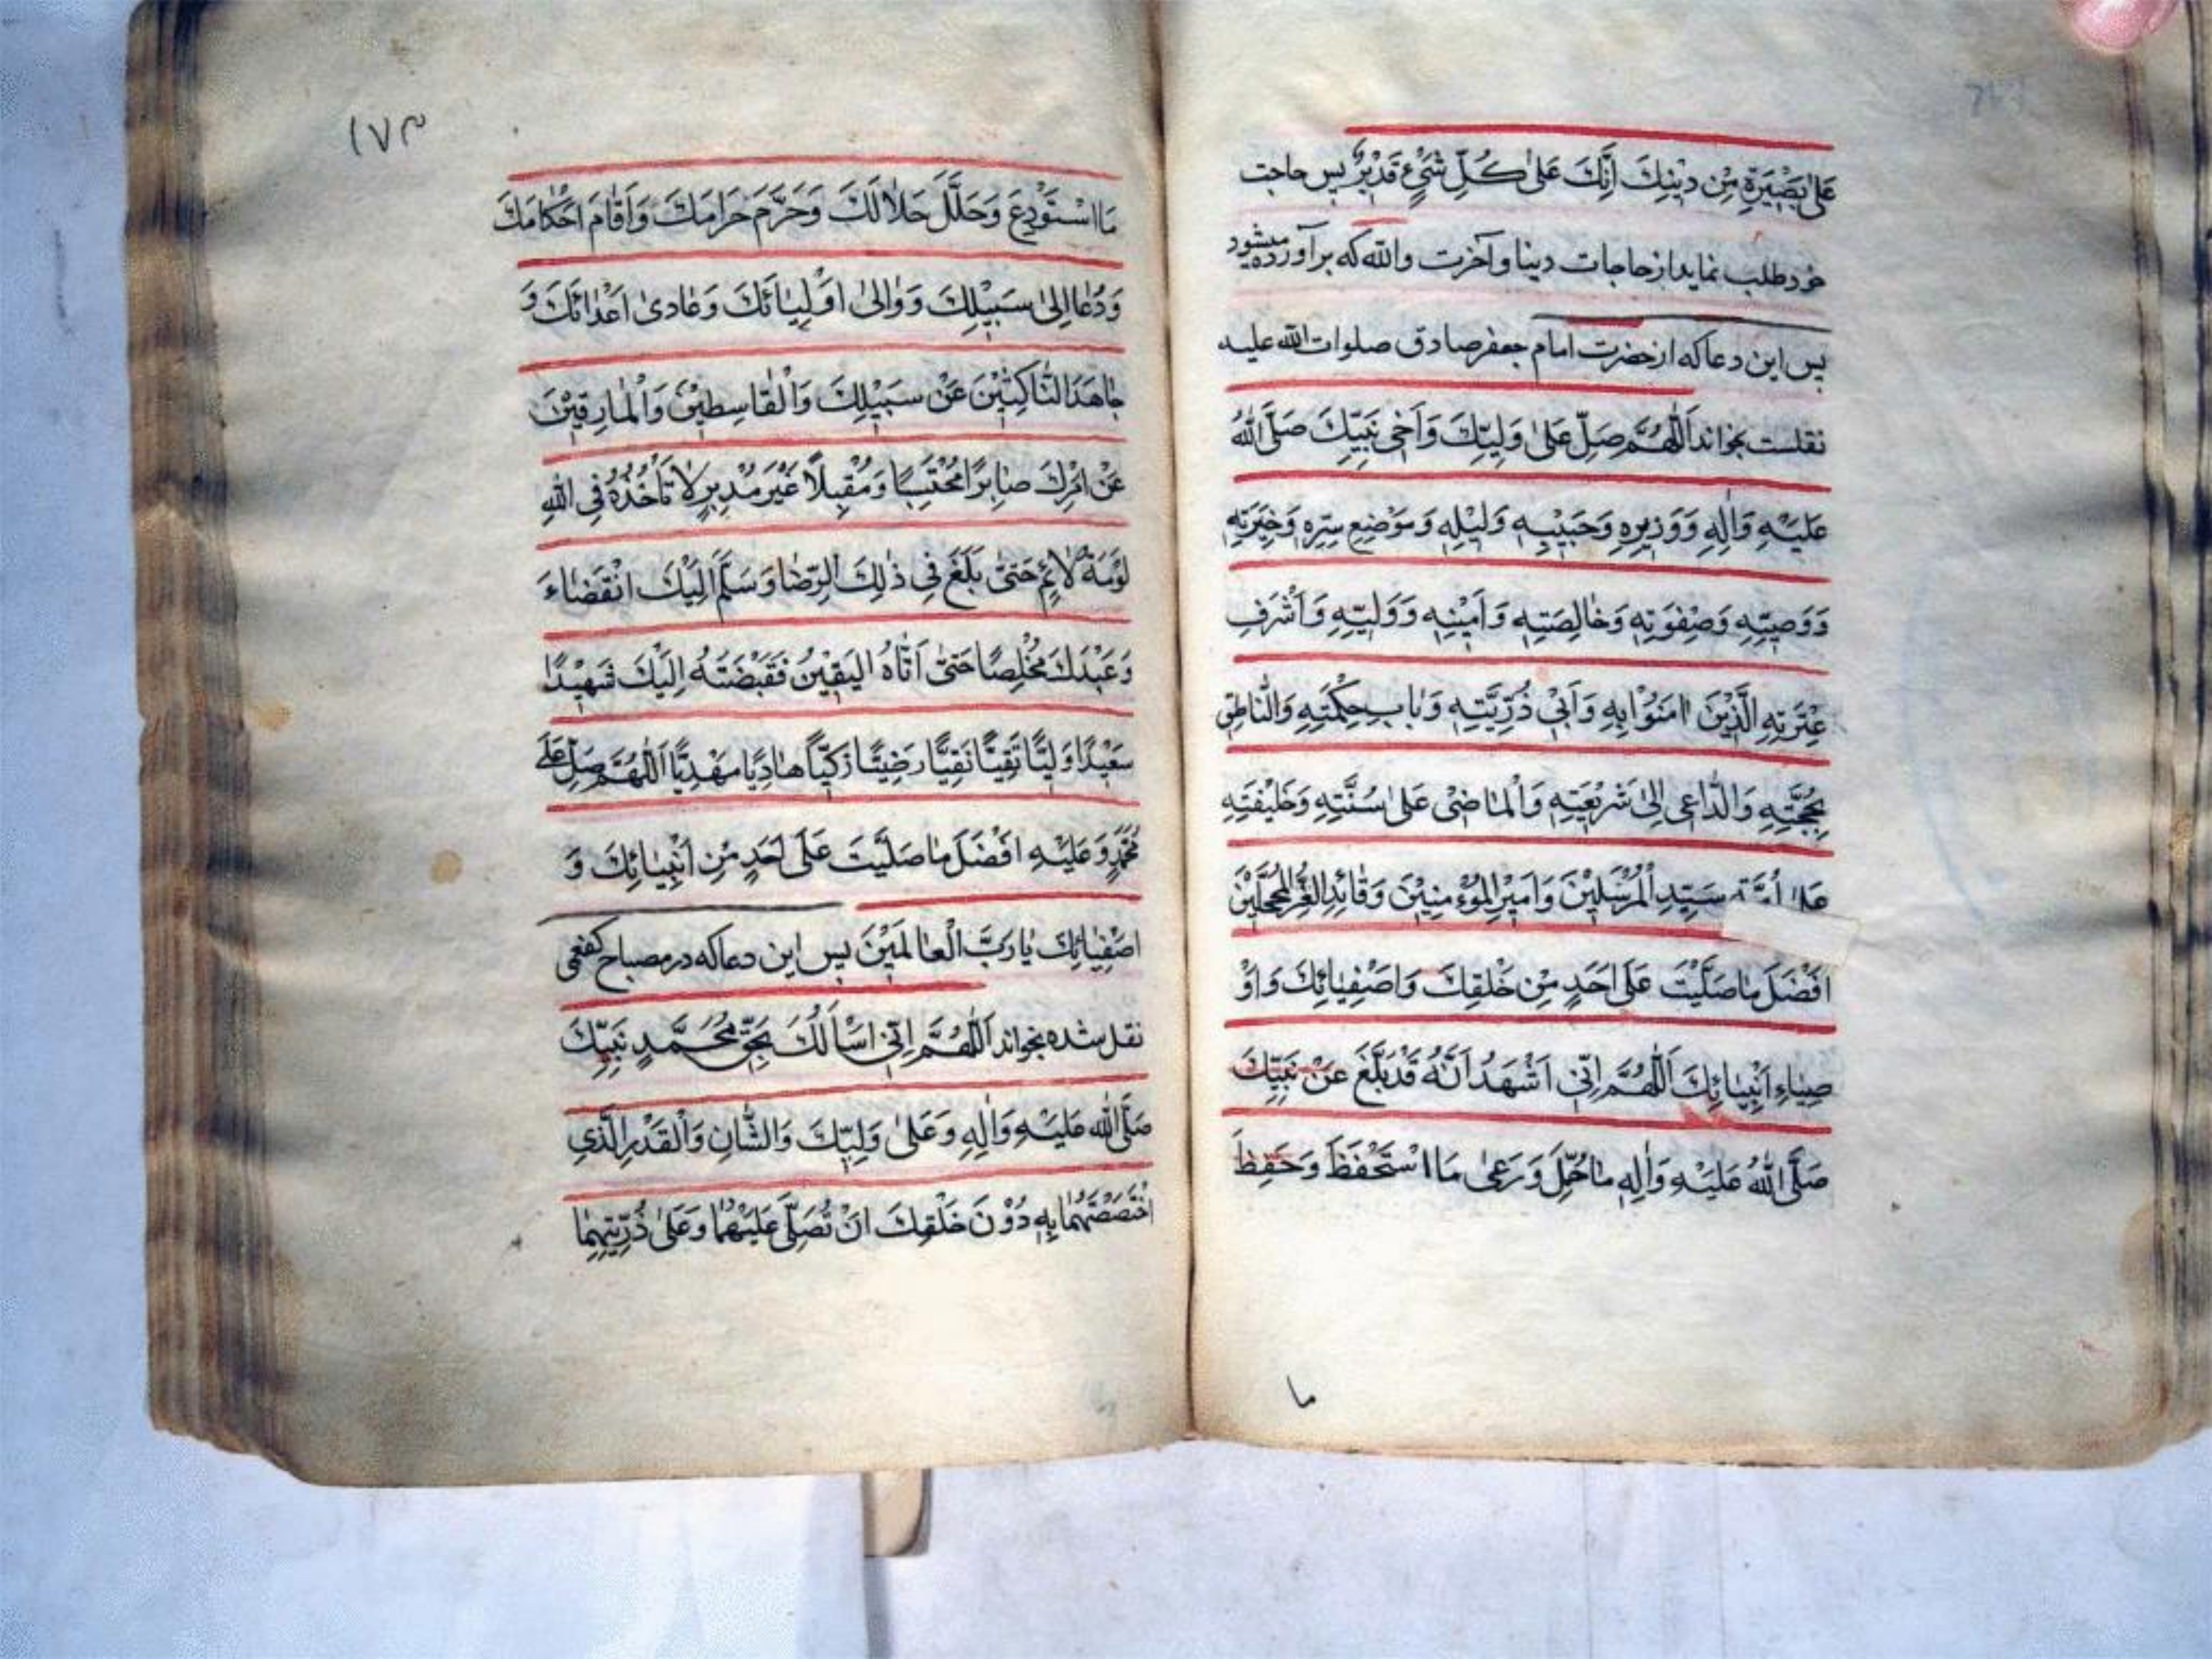 عَلىٰ بَصْيَرَةٍ مِنْ دِيْنِكَ اِنَّكَ عَلىٰ كُلِّ شَيْءٍ قَدْيْرٌ پس حاجت
خود طلب نمايد از حاجات دينا و آخرت والله كه برآورده ميشود
پس اين دعا كه از حضرت امام جعفر صادق صلوات الله عليه
نقلست بخواند اَللّٰهُمَّ صَلِّ عَلىٰ وَلِيِّكَ وَاَخى نَبِيِّكَ صَلَّى اللّٰهُ
عَلَيْهِ وَاٰلِهِ وَوَزيرِهِ وَحَبيْبِهِ وَليْلِهِ وَمَوْضِعِ سِرِّهِ وَخِيَرَتِهِ
وَوَصِيِّهِ وَصِفْوَتِهِ وَخٰالِصَتِهِ وَاَميْنِهِ وَوَلِيِّهِ وَاَشْرَفِ
عِتْرَتِهِ الَّذيْنَ اٰمَنُوْا بِهِ وَاَبيْ ذُرِّيَّتِهِ وَبٰابِ حِكْمَتِهِ وَالنّٰاطِقِ
بِحُجَّتِهِ وَالدّٰاعى اِلىٰ شَرْيعَتِهِ وَالْمٰاضىْ عَلىٰ سُنَّتِهِ وَخَليْفَتِهِ
عَلىٰ اُمَّتِهِ سَيِّدِ الْمُرْسَليْنَ وَاَميْرِ الْمُوْءْمِنيْنَ وَقٰائِدِ الْغُرِّ الْمُحَجَّليْنَ
اَفْضَلَ مٰا صَلَّيْتَ عَلىٰ اَحَدٍ مِنْ خَلْقِكَ وَاَصْفِيٰائِكَ وَاَوْ
صِيٰاءِ اَنْبِيٰائِكَ اَللّٰهُمَّ اِنّى اَشْهَدُ اَنَّهُ قَدْ بَلَّغَ عَنْ نَبِيِّكَ
صَلَّى اللّٰهُ عَلَيْهِ وَاٰلِهِ مٰا حُمِّلَ وَرَعىٰ مَا اسْتَحْفَظَ وَحَفِظَ
ما
١٧٣
مَا اسْتَوْدِعَ وَحَلَّلَ حَلاٰلَكَ وَحَرَّمَ حَرامَكَ وَاَقٰامَ اَحْكٰامَكَ
وَدُعٰا اِلىٰ سَبيْلِكَ وَوٰالىٰ اَوْلِيٰائَكَ وَعٰادىٰ اَعْدٰائَكَ وَ
جٰاهَدَ النّٰاكِثيْنَ عَنْ سَبيْلِكَ وَالْقٰاسِطيْنَ وَالْمٰارِقيْنَ
عَنْ اَمْرِكَ صٰابِرًا مُحْتَسِبًا وَمُقْبِلاً غَيْرَ مُدْبِرٍ لاٰ تَأْخُذُهُ فِى اللّٰهِ
لَوْمَةُ لاٰئِمٍ حَتىّٰ بَلَغَ فى ذٰلِكَ الرِّضٰا وَسَلَّمَ اِلَيْكَ انْقَضٰاءَ
وَعَبْدَكَ مُخْلِصًا حَتىّٰ اَتٰاهُ الْيَقيْنُ فَقَبَضْتَهُ اِلَيْكَ شَهيْدًا
سَعيْدًا وَلِيًّا تَقِيًّا نَقِيًّا رَضِيًّا زَكِيًّا هٰادِيًا مَهْدِيًّا اَللّٰهُمَّ صَلِّ عَلىٰ
مُحَمَّدٍ وَعَلَيْهِ اَفْضَلَ مٰا صَلَّيْتَ عَلىٰ اَحَدٍ مِنْ اَنْبِيٰائِكَ وَ
اَصْفِيٰائِكَ يٰا رَبَّ الْعٰالَميْنَ پس اين دعا كه در مصباح كفعمى
نقل شده بخواند اَللّٰهُمَّ اِنّى اَسْأَلُكَ بِحَقِّ مُحَمَّدٍ نَبِيِّكَ
صَلَّى اللّٰه عَلَيْهِ وَاٰلِهِ وَعَلىٰ وَلِيِّكَ وَالشّٰانِ وَالْقَدْرِ الَّذي
اخْتَصَصْتَهُمٰا بِهِ دُوْنَ خَلْقِكَ اَنْ تُصَلِّىَ عَلَيْهُمٰا وَعَلىٰ ذُرِّيَّتِهِمٰا